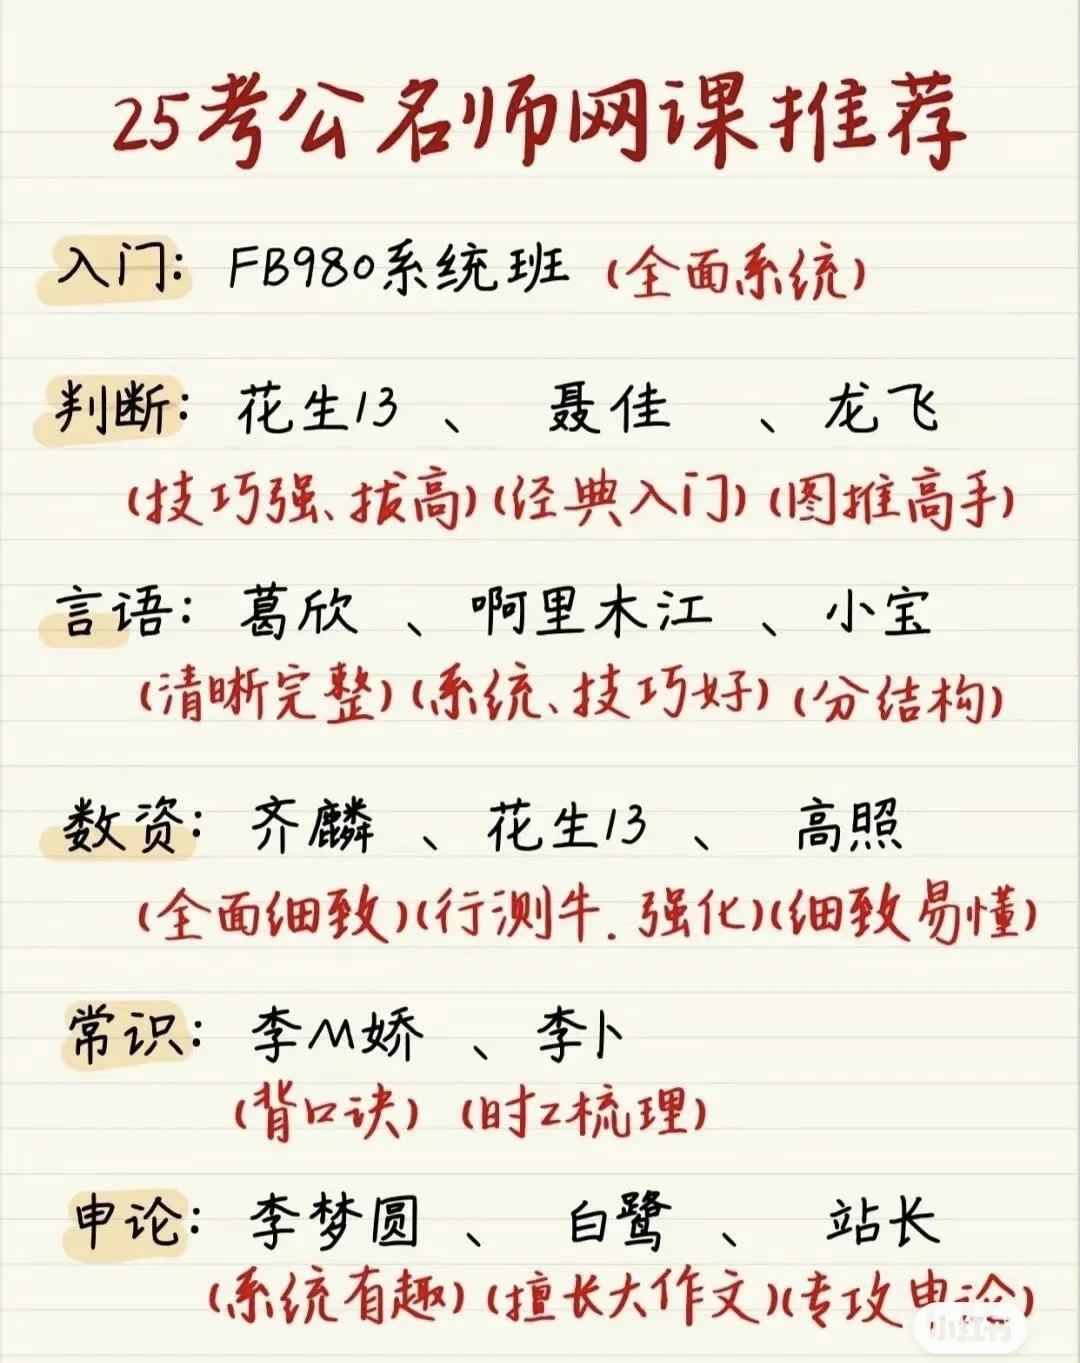 25考公名师网课推荐
入门: FB980系统班 (全面系统)
判断: 花生13 、 聂佳 、龙飞
(技巧强、拔高)(经典入门)(图推高手)
言语: 葛欣 、啊里木江 、小宝
(清晰完整)(系统、技巧好)(分结构)
数资: 齐麟 、花生13 、 高照
(全面细致)(行测牛.强化)(细致易懂)
常识: 李M娇 、李卜
(背口诀) (时工梳理)
申论: 李梦圆 、 白鹭 、 站长
(系统有趣)(擅长大作文)(专攻申论)
小红书